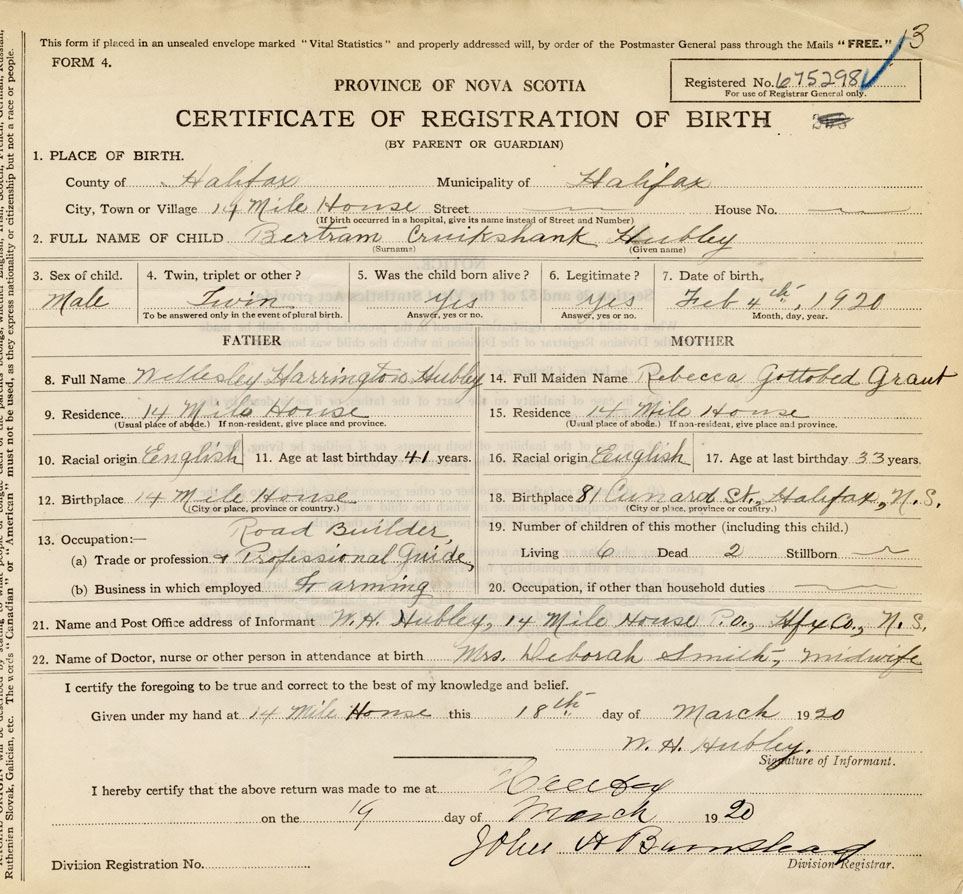 This form if placed in an unsealed envelope marked "Vital Statistics" and properly addressed will, by order of the Postmaster General pass through the Mails "FREE." 13
FORM 4.
Registered No. 6752981
For use of Registrar General only.
PROVINCE OF NOVA SCOTIA
CERTIFICATE OF REGISTRATION OF BIRTH
(BY PARENT OR GUARDIAN)
1. PLACE OF BIRTH.
County of Halifax Municipality of Halifax
City, Town or Village 14 Mile House Street House No.
(If birth occurred in a hospital, give its name instead of Street and Number)
2. FULL NAME OF CHILD Bertram Cruikshank Hubley
(Surname) (Given name)
3. Sex of child. 4. Twin, triplet or other? 5. Was the child born alive? 6. Legitimate? 7. Date of birth.
Male Twin Yes Yes Feb 4th, 1920
To be answered only in the event of plural birth. Answer, yes or no. Answer, yes or no. Month, day, year.
FATHER
8. Full Name Wellesley Harrington Hubley
9. Residence. 14 Mile House
(Usual place of abode.) If non-resident, give place and province.
10. Racial origin English 11. Age at last birthday 41 years.
12. Birthplace 14 Mile House
(City or place, province or country.)
13. Occupation:— Road Builder,
(a) Trade or profession & Professional Guide,
(b) Business in which employed Farming
MOTHER
14. Full Maiden Name Rebecca Gottobed Grant
15. Residence 14 Mile House
(Usual place of abode.) If non-resident, give place and province.
16. Racial origin English 17. Age at last birthday 33 years.
18. Birthplace 81 Cunard St., Halifax, N.S.
(City or place, province or country.)
19. Number of children of this mother (including this child.)
Living 6 Dead 2 Stillborn
20. Occupation, if other than household duties
21. Name and Post Office address of Informant W. H. Hubley, 14 Mile House P.O., Hfx Co., N.S.
22. Name of Doctor, nurse or other person in attendance at birth Mrs. Deborah Smith, midwife
I certify the foregoing to be true and correct to the best of my knowledge and belief.
Given under my hand at 14 Mile House this 18th day of March 1920
W. H. Hubley.
Signature of Informant.
I hereby certify that the above return was made to me at Halifax
on the 19 day of March 1920
John H Barnstead
Division Registrar.
Division Registration No.
Ruthenien Slovak, Galician, etc. The words "Canadian or "American" must not be used, as they express nationality or citizenship but not a race or people.